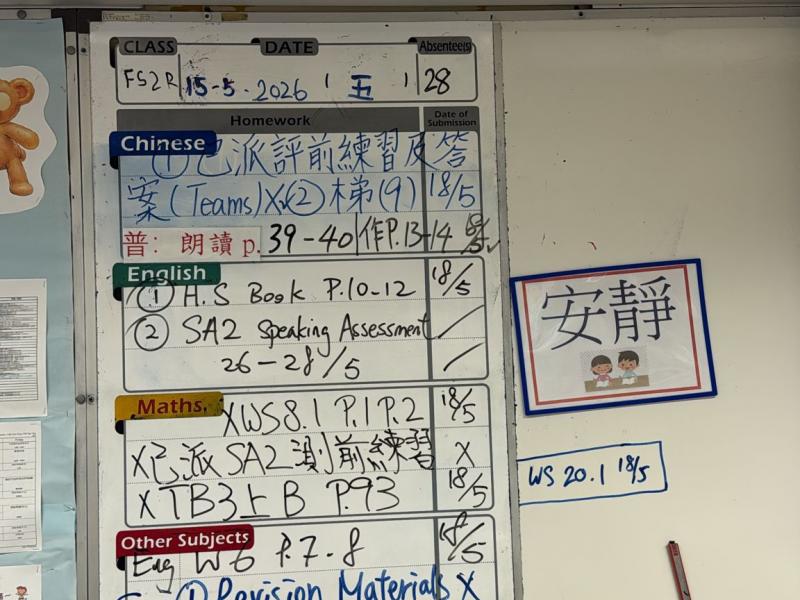 CLASS DATE Absentee(s)
FS2R 15-5-2026 (五) 28
Homework Date of Submission
Chinese
①已派評前練習及答
案(Teams)X②梯(9) 18/5
普: 朗讀 p. 39-40 作P.13-14 18/5
English
① H.S Book P.10-12 18/5
② SA2 Speaking Assessment
26-28/5
Maths.
XWS8.1 P.1 P.2 18/5
X已派SA2測前練習 X
XTB3上B P.93 18/5
Other Subjects
Eng W6 P.7-8 18/5
① Revision Materials X
安靜
WS 20.1 18/5